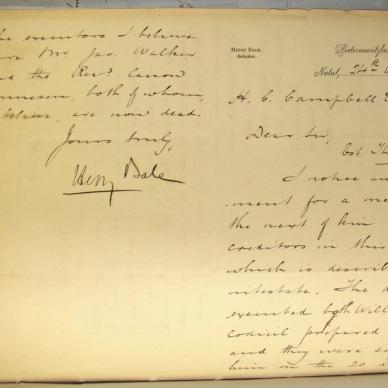 he executors I believe
Mr. Jas. Walker
the Revd. Canon
both of whom,
believe, are now dead.
Yours truly,
Henry Bale
Henry Bale,
Solicitor.
Pietermaritzbu
Natal, 24th
H. C. Campbell
Dear Sir,
Est. Th
I notice an
ment for a me
the next of kin
creditors in this
which is describ
intestate. The d
executed both Will
codicil prepared
and they were
him on the 20